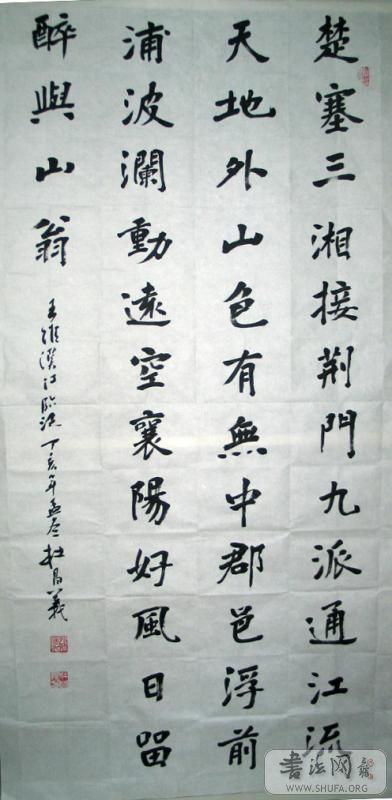 楚塞三湘接荊門九派通江流
天地外山色有無中郡邑浮前
浦波瀾動遠空襄陽好風日留
醉與山翁
王維漢江臨泛丁亥年孟冬杜昌義
書法网
WWW.SHUFA.ORG